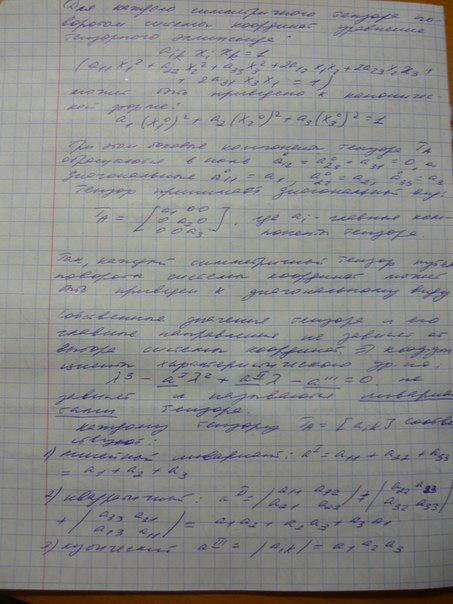 Для каждого симметричного тензора по-
воротом системы координат уравнение
тензорного эллипсоида
aik xi xk = 1
(a11 x1² + a22 x2² + a33 x3² + 2a12 x1 x2 + 2a23 x2 x3 +
+ 2a31 x3 x1 = 1)
может быть приведено к каноничес-
кой форме:
a1 (x1⁰)² + a2 (x2⁰)² + a3 (x3⁰)² = 1
При этом боковые компоненты тензора TA
обращаются в ноль a⁰12 = a⁰23 = a⁰31 = 0, а
диагональные a⁰11 = a1, a⁰22 = a2, a⁰33 = a3
Тензор принимает диагональный вид:
TA = [a1 0 0
0 a2 0
0 0 a3], где ai - главные ком-
поненты тензора.
Так, каждый симметричный тензор путём
поворота системы координат может
быть приведен к диагональному виду
Собственные значения тензора и его
главные направления не зависят от
выбора системы координат. Коэффи-
циенты характеристического ур-ия:
λ³ - aᴵλ² + aᴵᴵλ - aᴵᴵᴵ = 0, не
зависят и называются инвариан-
тами тензора.
каждому тензору TA = [aik] соотве-
тствуют:
1) линейный инвариант: aᴵ = a11 + a22 + a33
= a1 + a2 + a3
2) квадратичный: aᴵᴵ = |a11 a12; a21 a22| + |a22 a23; a32 a33|
+ |a33 a31; a13 a11| = a1 a2 + a2 a3 + a3 a1
3) кубический aᴵᴵᴵ = |aik| = a1 a2 a3